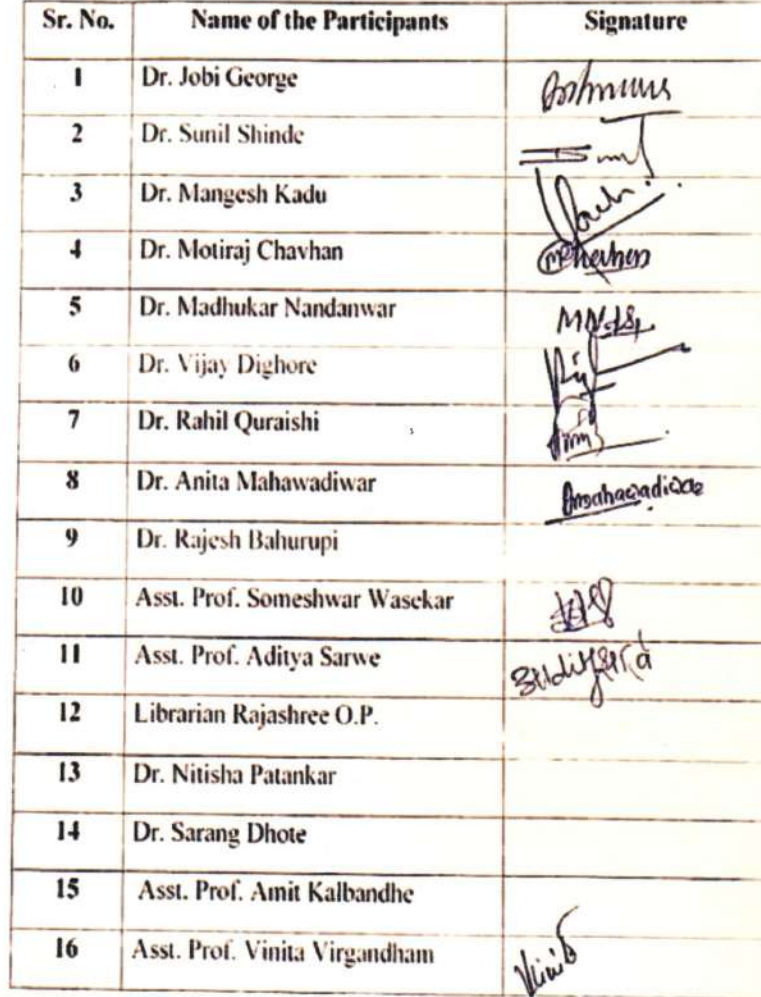 Sr. No. Name of the Participants Signature
1 Dr. Jobi George
2 Dr. Sunil Shinde
3 Dr. Mangesh Kadu
4 Dr. Motiraj Chavhan
5 Dr. Madhukar Nandanwar
6 Dr. Vijay Dighore
7 Dr. Rahil Quraishi
8 Dr. Anita Mahawadiwar
9 Dr. Rajesh Bahurupi
10 Asst. Prof. Someshwar Wasekar
11 Asst. Prof. Aditya Sarwe
12 Librarian Rajashree O.P.
13 Dr. Nitisha Patankar
14 Dr. Sarang Dhote
15 Asst. Prof. Amit Kalbandhe
16 Asst. Prof. Vinita Virgandham